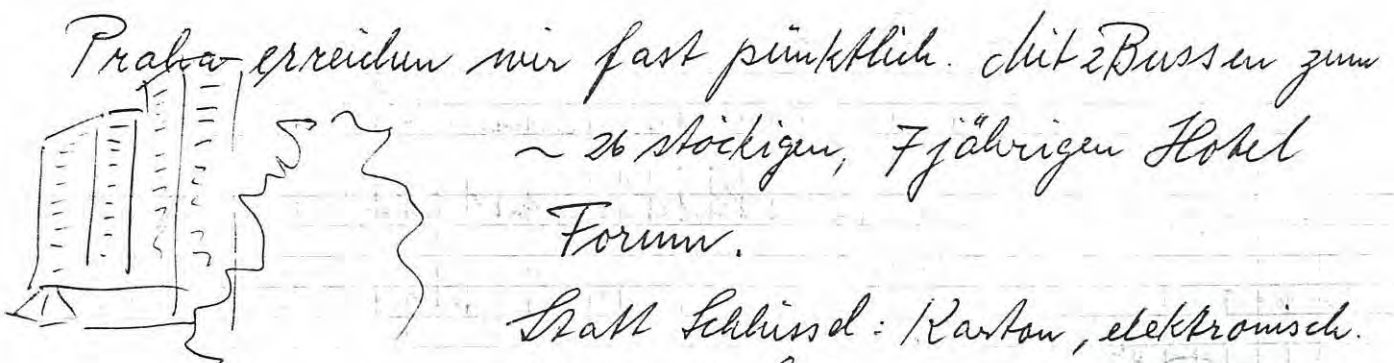 Praha erreichen wir fast pünktlich. Mit 2 Bussen zum
~ 26 stöckigen, 7 jährigen Hotel
Forum.
Statt Schlüssel: Karton, elektronisch.